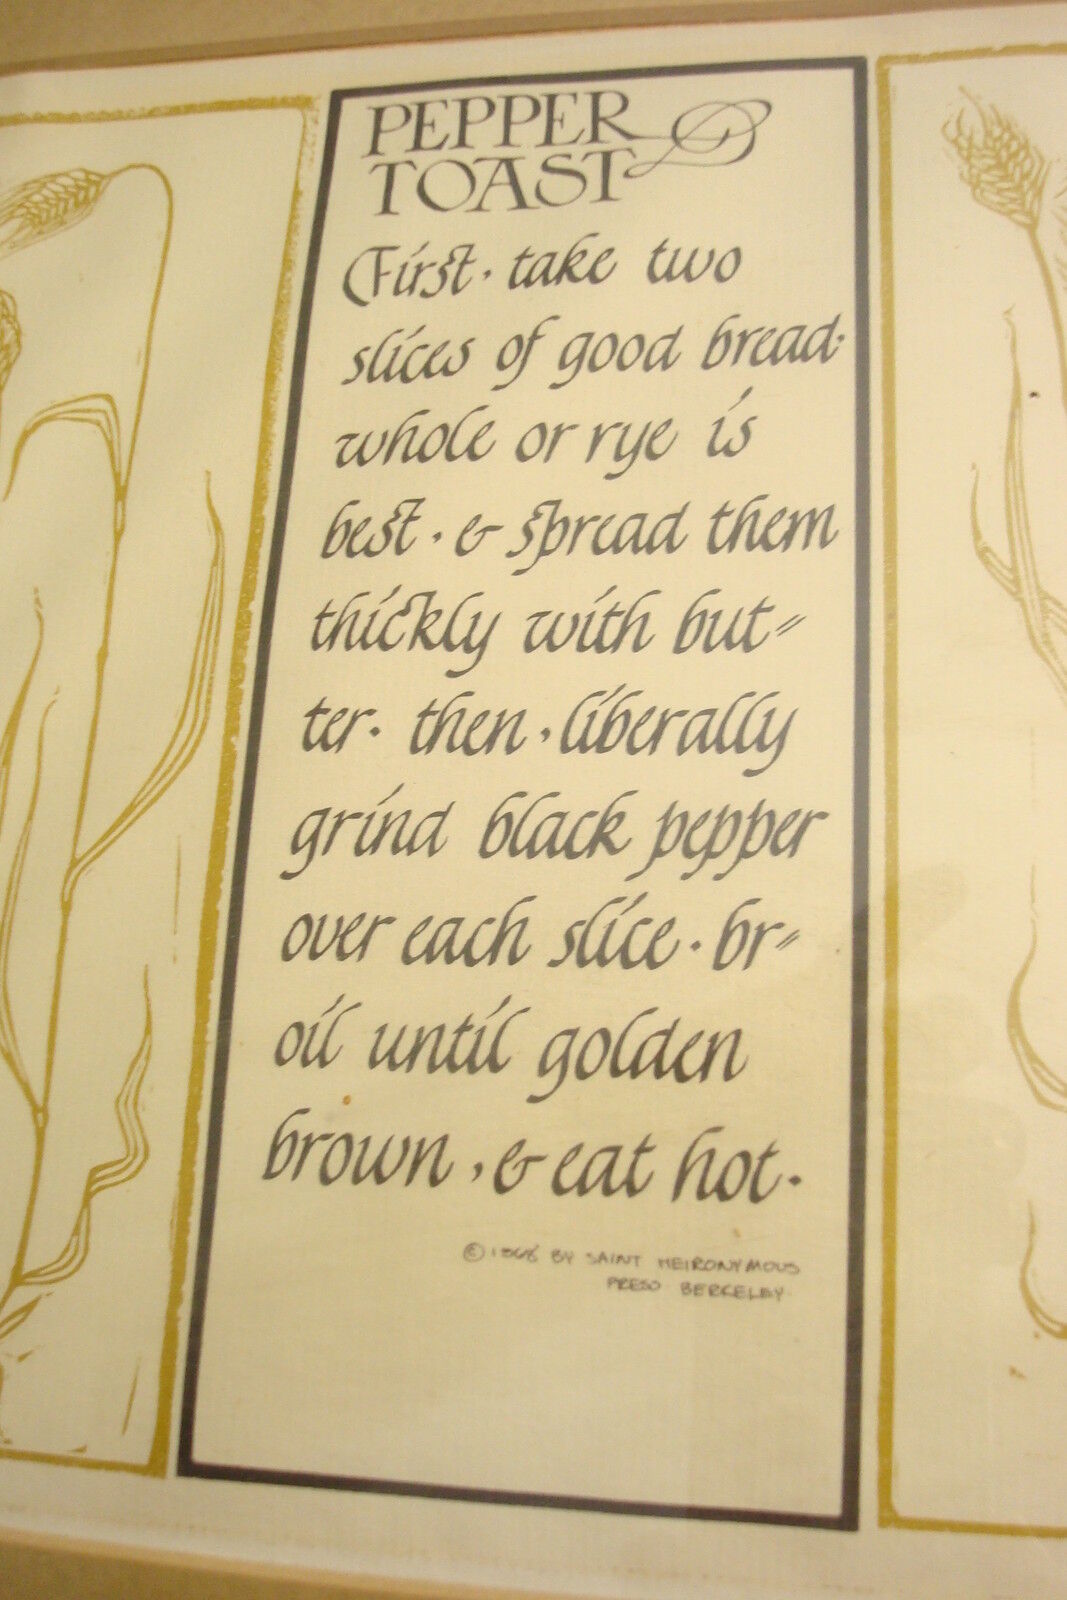 PEPPER
TOAST
First · take two
slices of good bread·
whole or rye is
best · & spread them
thickly with but-
ter· then , liberally
grind black pepper
over each slice · br-
oil until golden
brown , & eat hot·
© 1968 BY SAINT HEIRONYMOUS
PRESS BERKELEY